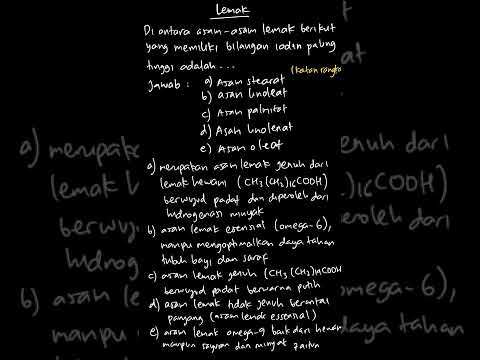 Lemak
Di antara asam-asam lemak berikut
yang memiliki bilangan iodin paling
tinggi adalah...
(Ikatan rangka
Jawab : a) Asam stearat
b) asam linoleat
c) Asam palmitat
d) Asam linolenat
e) Asam oleat
a) merupakan asam lemak jenuh dari
lemak hewani (CH3(CH2)16COOH)
berwujud padat dan diperoleh dari
hidrogenasi minyak
b) asam lemak esensial (omega-6),
mampu mengoptimalkan daya tahan
tubuh bayi dan saraf
c) asam lemak jenuh (CH3(CH2)14COOH
berwujud padat berwarna putih
d) asam lemak tidak jenuh berantai
panjang (asam lemak essensial)
e) asam lemak omega-9 baik dari hewan
maupun sayuran dan minyak zaitun